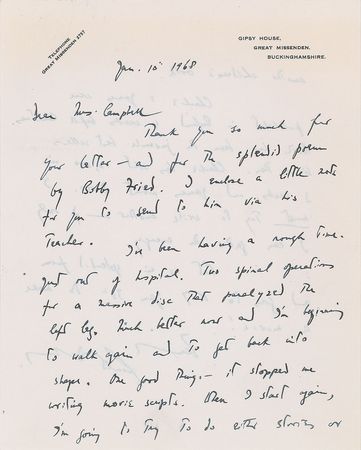 TELEPHONE
GREAT MISSENDEN 2757
GIPSY HOUSE,
GREAT MISSENDEN,
BUCKINGHAMSHIRE.
Jan. 10th 1968
Dear Mrs. Campbell
Thank you so much for
your letter – and for the splendid poem
by Bobby Fried. I enclose a little note
for you to send to him via his
teacher.
I've been having a rough time.
Just out of hospital. Two spinal operations
for a massive disc that paralyzed the
left leg. Much better now and I'm beginning
to walk again and to get back into
shape. One good thing – it stopped me
writing movie scripts. When I start again,
I'm going to try to do either stories or